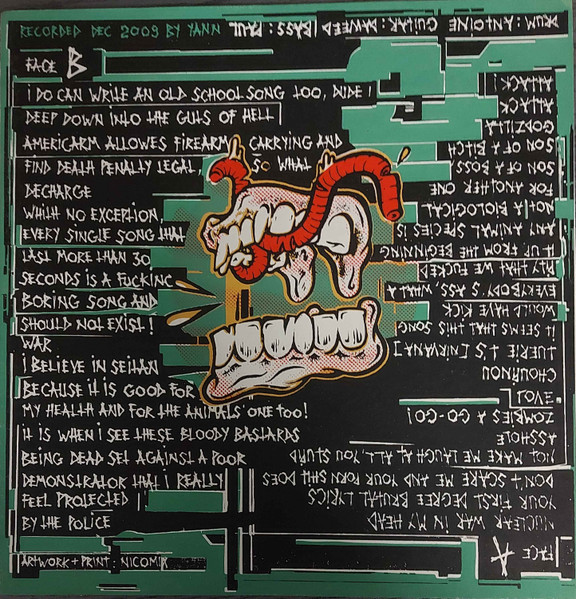 RECORDED DEC 2009 BY YANN
FACE B
I DO CAN WRITE AN OLD SCHOOL SONG TOO, DUDE !
DEEP DOWN INTO THE GUTS OF HELL
AMERICARM ALLOWES FIREARM CARRYING AND
FIND DEATH PENALTY LEGAL, SO WHAT
DECHARGE
WHITH NO EXCEPTION,
EVERY SINGLE SONG THAT
LAST MORE THAN 30
SECONDS IS A FUCKING
BORING SONG AND
SHOULD NOT EXIST !
WAR
I BELIEVE IN SEITAN
BECAUSE IT IS GOOD FOR
MY HEALTH AND FOR THE ANIMALS' ONE TOO!
IT IS WHEN I SEE THESE BLOODY BASTARDS
BEING DEAD SET AGAINST A POOR
DEMONSTRATOR THAT I REALLY
FEEL PROTECTED
BY THE POLICE
ARTWORK + PRINT : NICOMIX
FACE A
NUCLEAR WAR IN MY HEAD
YOUR FIRST DEGREE BRUTAL LYRICS
DON'T SCARE ME AND YOUR PORN SHIT DOES
NOT MAKE ME LAUGH AT ALL, YOU STUPID
ASSHOLE
ZOMBIES A GO-GO!
CHOURNOU
TUERIE
[NIRVANA]
IT SEEMS THAT THIS SONG
WOULD HAVE KICK
EVERYBODY'S ASS, WHAT A
PITY THAT WE FUCKED
IT UP FROM THE BEGINNING
ANY ANIMAL SPECIES IS
NOT A BIOLOGICAL
FOR ANOTHER ONE
SON OF A BOSS,
SON OF A BITCH
GODZILLA
ATTACK
ATTACK !
DRUM : ANTOINE GUITAR : DAVEED | BASS : PAUL